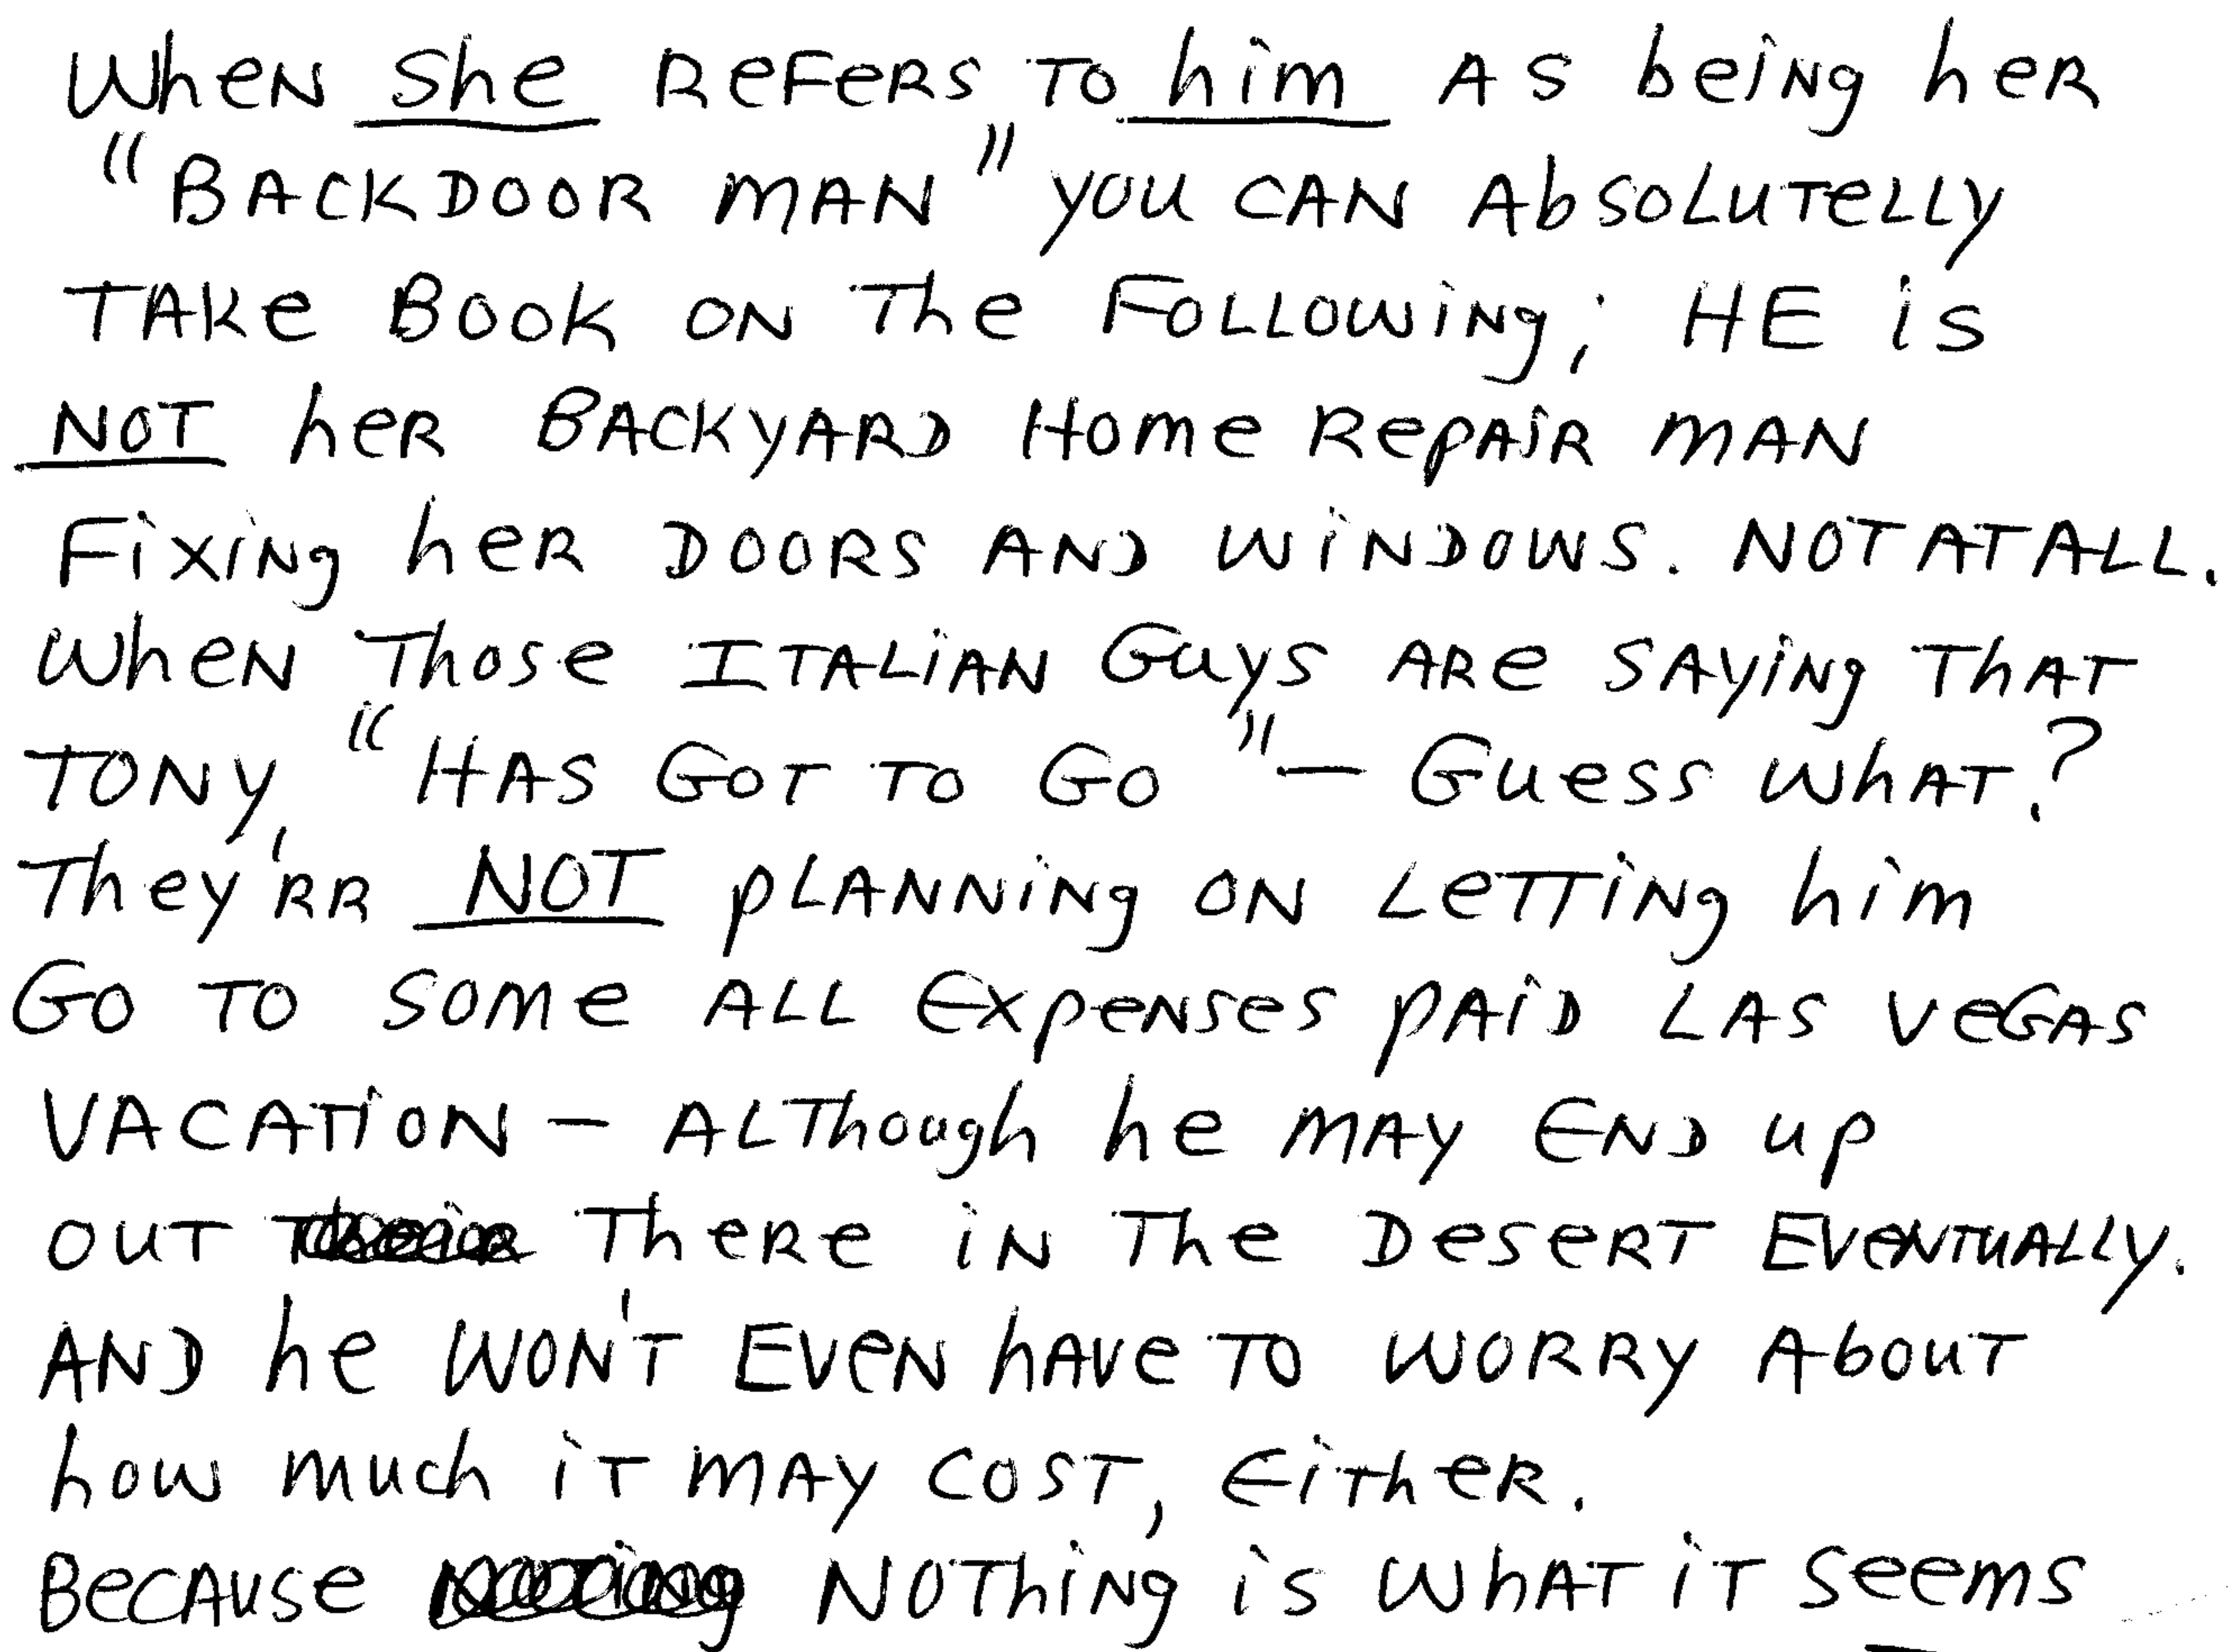 When she refers to him as being her
"BACKDOOR MAN" you can Absolutelly
TAKE BOOK ON The Following; HE is
NOT her BACKYARD Home Repair MAN
Fixing her DOORS AND WINDOWS. NOT AT ALL.
When Those ITALIAN Guys ARE SAYING That
TONY, "HAS GOT TO GO" - Guess what?
They'rr NOT planning on Letting him
GO TO SOME ALL Expenses PAID LAS VEGAS
VACATION - Although he may END up
OUT There in The Desert Eventually.
AND he WON'T EVEN have TO WORRY About
how much iT MAY COST, Either.
Because NOThing is what iT seems